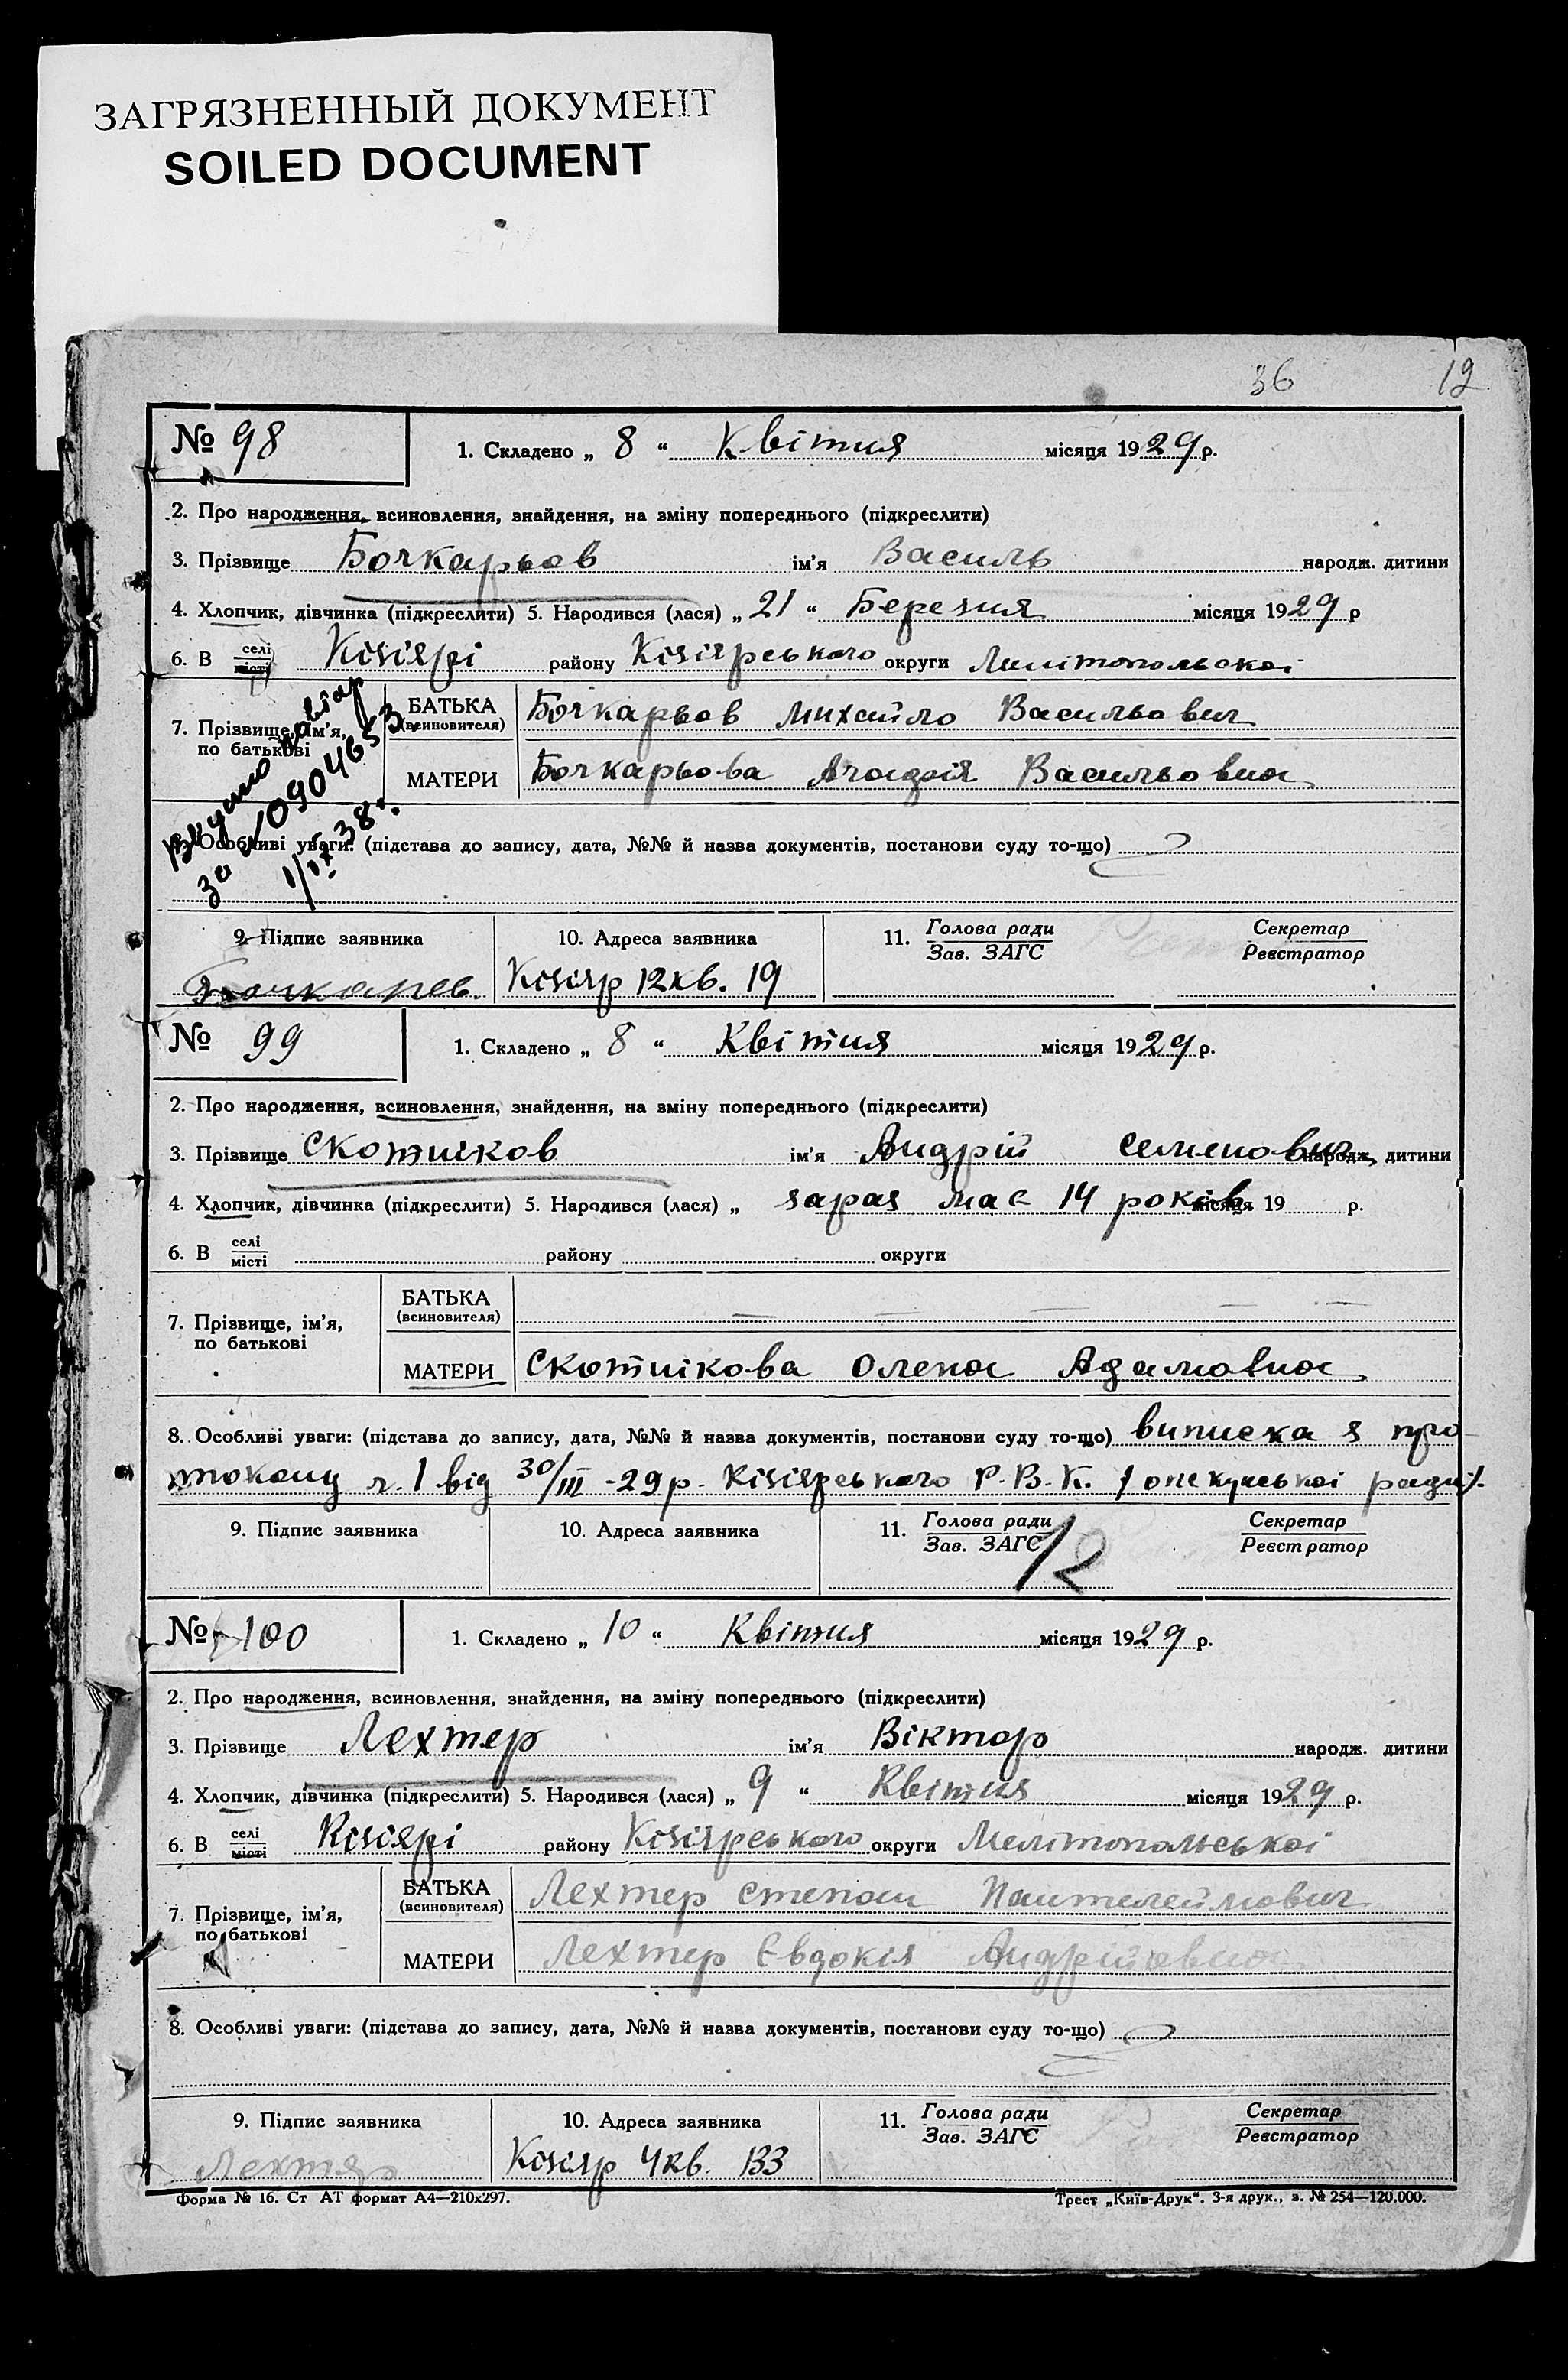 ЗАГРЯЗНЕННЫЙ ДОКУМЕНТ
SOILED DOCUMENT
36 12
№ 98 1. Складено „ 8 “ Квітня місяця 1929 р.
2. Про народження, всиновлення, знайдення, на зміну попереднього (підкреслити)
3. Прізвище Бочкарьов ім'я Василь народж. дитини
4. Хлопчик, дівчинка (підкреслити) 5. Народився (лася) „ 21 “ Березня місяця 1929 р
6. В селі місті Кізіярі району Кізіярського округи Мелітопольскоі
7. Прізвище, ім'я, по батькові
БАТЬКА (всиновителя) Бочкарьов Михайло Васильович
МАТЕРИ Бочкарьова Агафія Васильовна
Видано
за № 0904653
1/IX 38 г.
Особливі уваги: (підстава до запису, дата, №№ й назва документів, постанови суду то-що)
9. Підпис заявника 10. Адреса заявника 11. Голова ради Зав. ЗАГС Секретар Реєстратор
Бочкарев. Кізіяр 12 кв. 19
№ 99 1. Складено „ 8 “ Квітня місяця 1929 р.
2. Про народження, всиновлення, знайдення, на зміну попереднього (підкреслити)
3. Прізвище Скотніков ім'я Андрій Семенович народж. дитини
4. Хлопчик, дівчинка (підкреслити) 5. Народився (лася) „ зараз має 14 років місяця 19 р.
6. В селі місті району округи
7. Прізвище, ім'я, по батькові
БАТЬКА (всиновителя) — — — — —
МАТЕРИ Скотнікова Олена Адамовна
8. Особливі уваги: (підстава до запису, дата, №№ й назва документів, постанови суду то-що) виписка з про-
токолу ч. 1 від 30/III -29 р. Кізіярського Р.В.К. /опекунськоі ради/.
9. Підпис заявника 10. Адреса заявника 11. Голова ради Зав. ЗАГС Секретар Реєстратор
12
№ 100 1. Складено „ 10 “ Квітня місяця 1929 р.
2. Про народження, всиновлення, знайдення, на зміну попереднього (підкреслити)
3. Прізвище Лехтер ім'я Віктор народж. дитини
4. Хлопчик, дівчинка (підкреслити) 5. Народився (лася) „ 9 “ Квітня місяця 1929 р.
6. В селі місті Кізіярі району Кізіярського округи Мелітопольськоі
7. Прізвище, ім'я, по батькові
БАТЬКА (всиновителя) Лехтер Степан Пантелеймович
МАТЕРИ Лехтер Євдокія Андрійовна
8. Особливі уваги: (підстава до запису, дата, №№ й назва документів, постанови суду то-що)
9. Підпис заявника 10. Адреса заявника 11. Голова ради Зав. ЗАГС Секретар Реєстратор
Лехтяр Кізіяр 4 кв. 133
Форма № 16. Ст АТ формат А4—210х297. Трест „Київ-Друк“. 3-я друк., з. № 254—120.000.